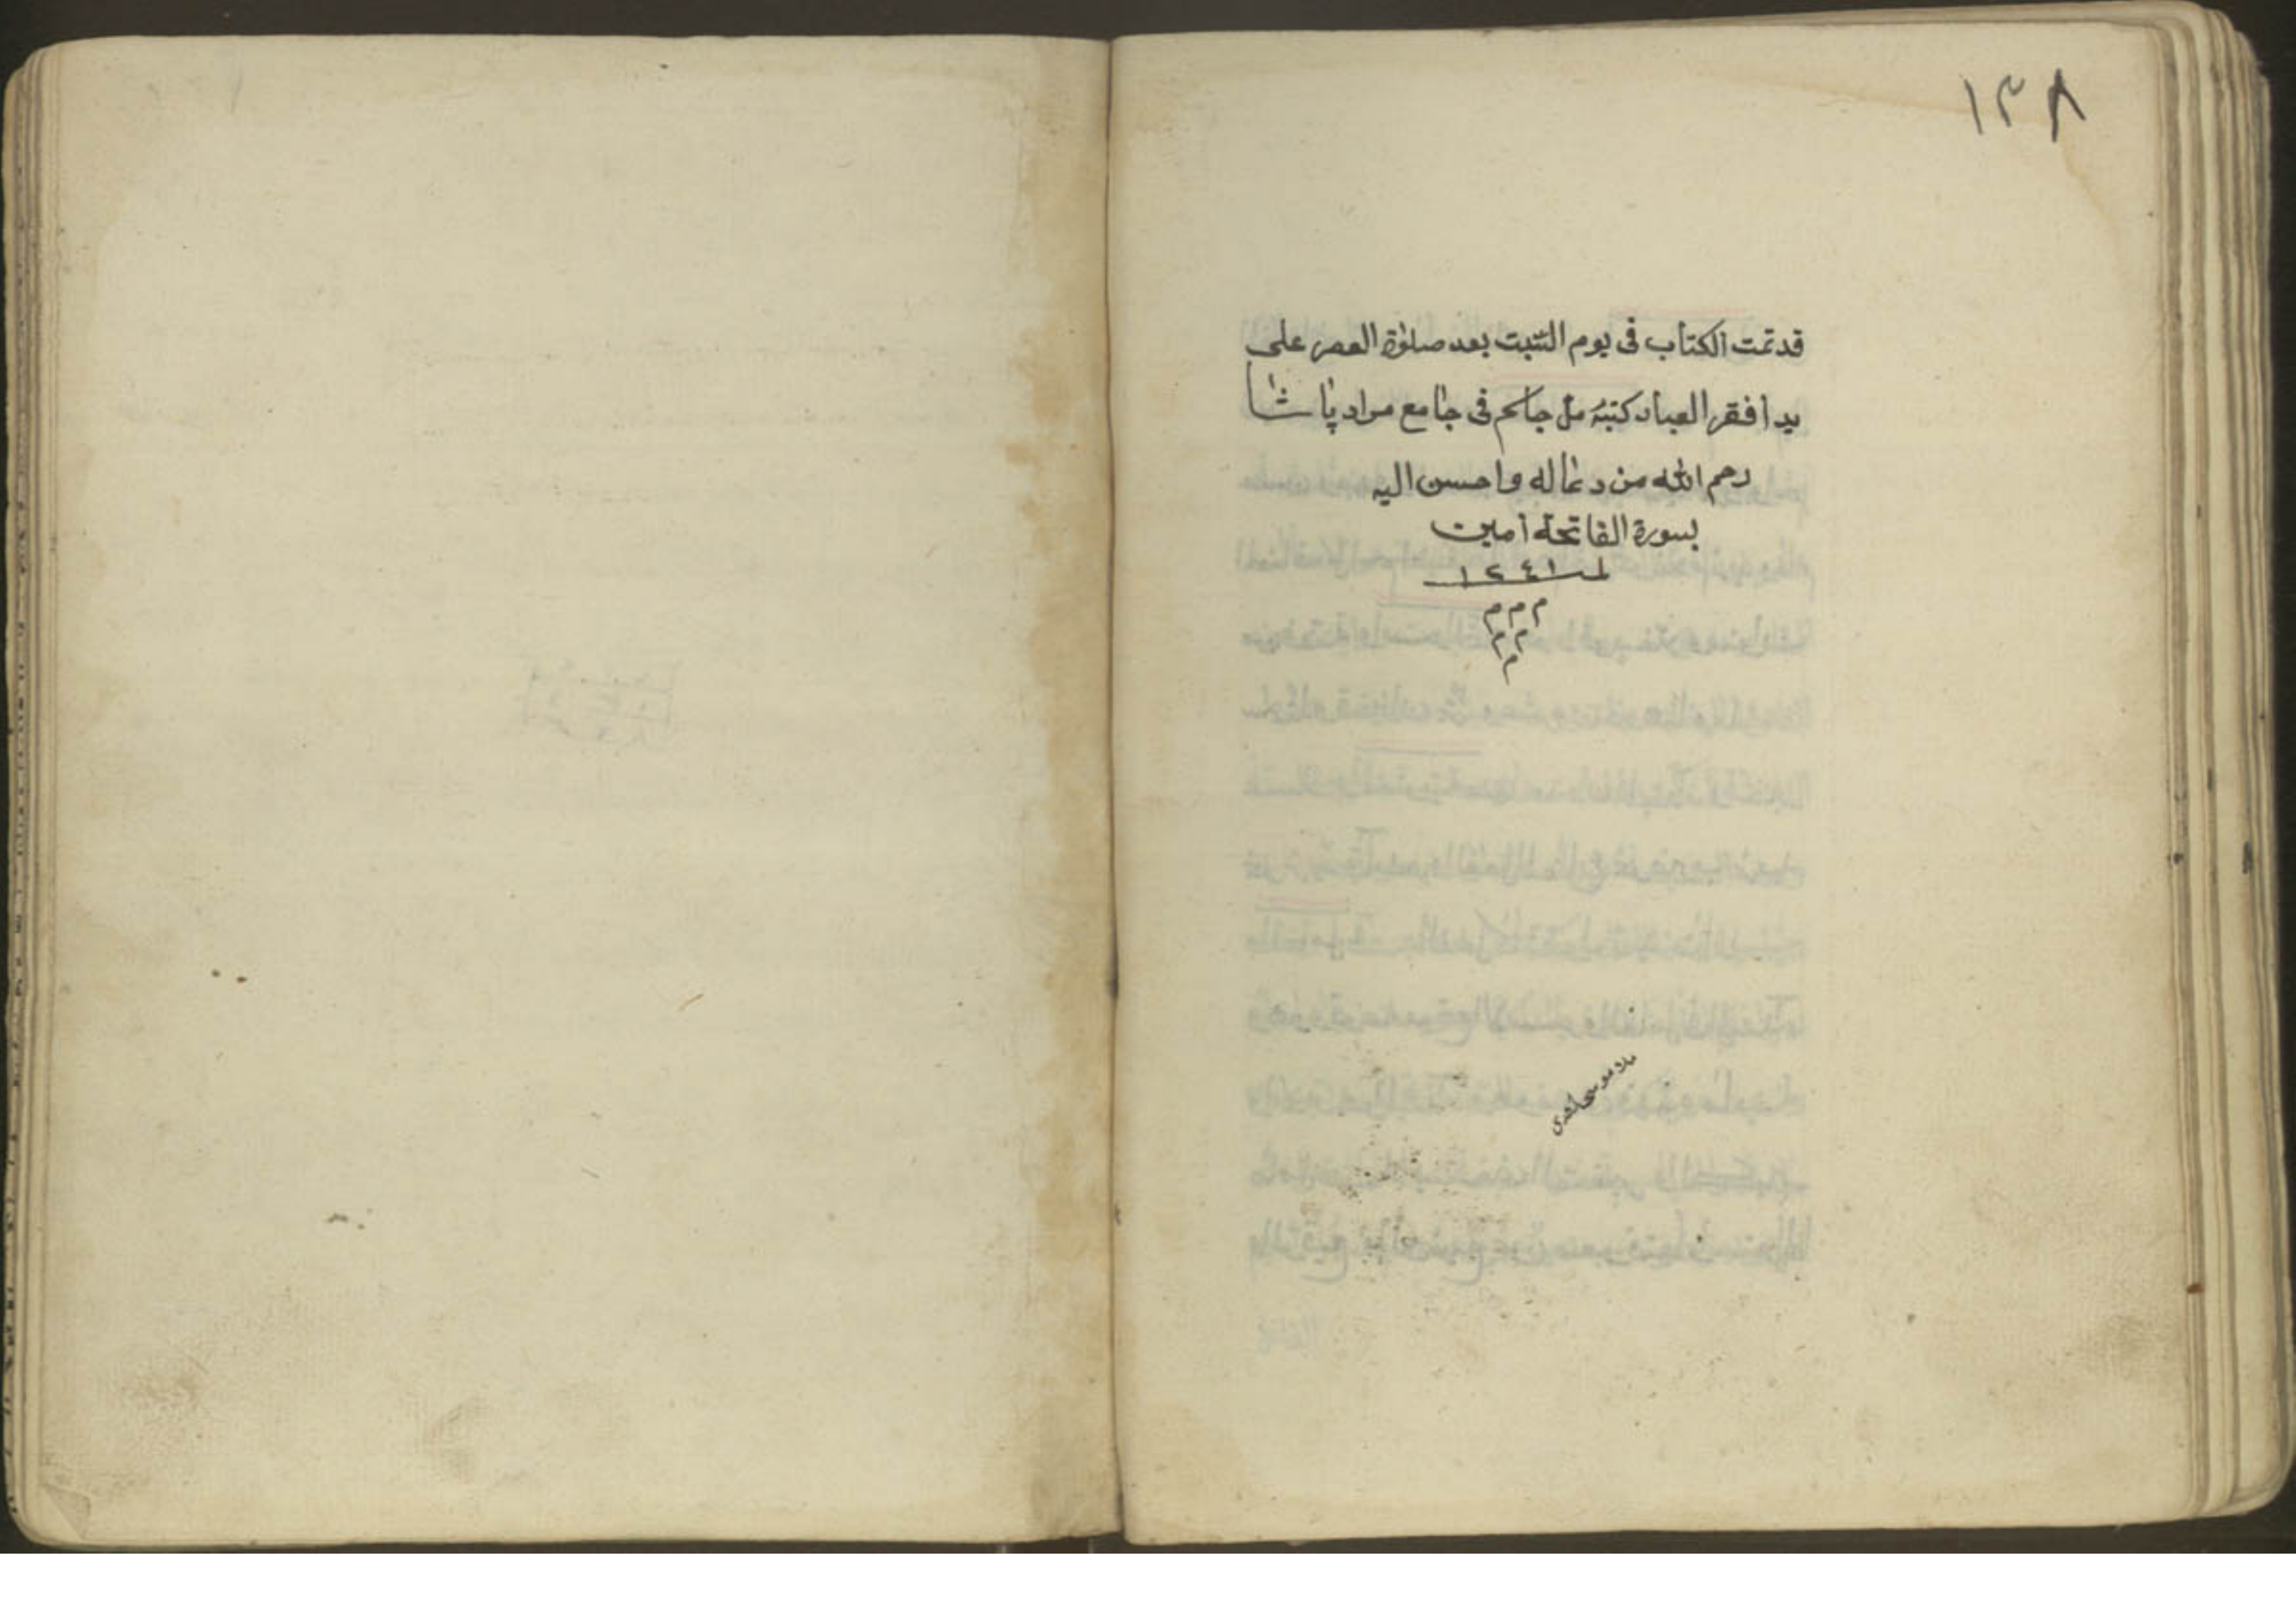 ١٣٨
قد تمت الكتاب فى يوم السّبت بعد صلوٰة العصر على
يد افقر العباد كتبهُ فى جامع مراد پاشا
رحم الله من دعا له واحسن اليه
بسورة الفاتحة آمين
١٢٤١
م م م
م م
م